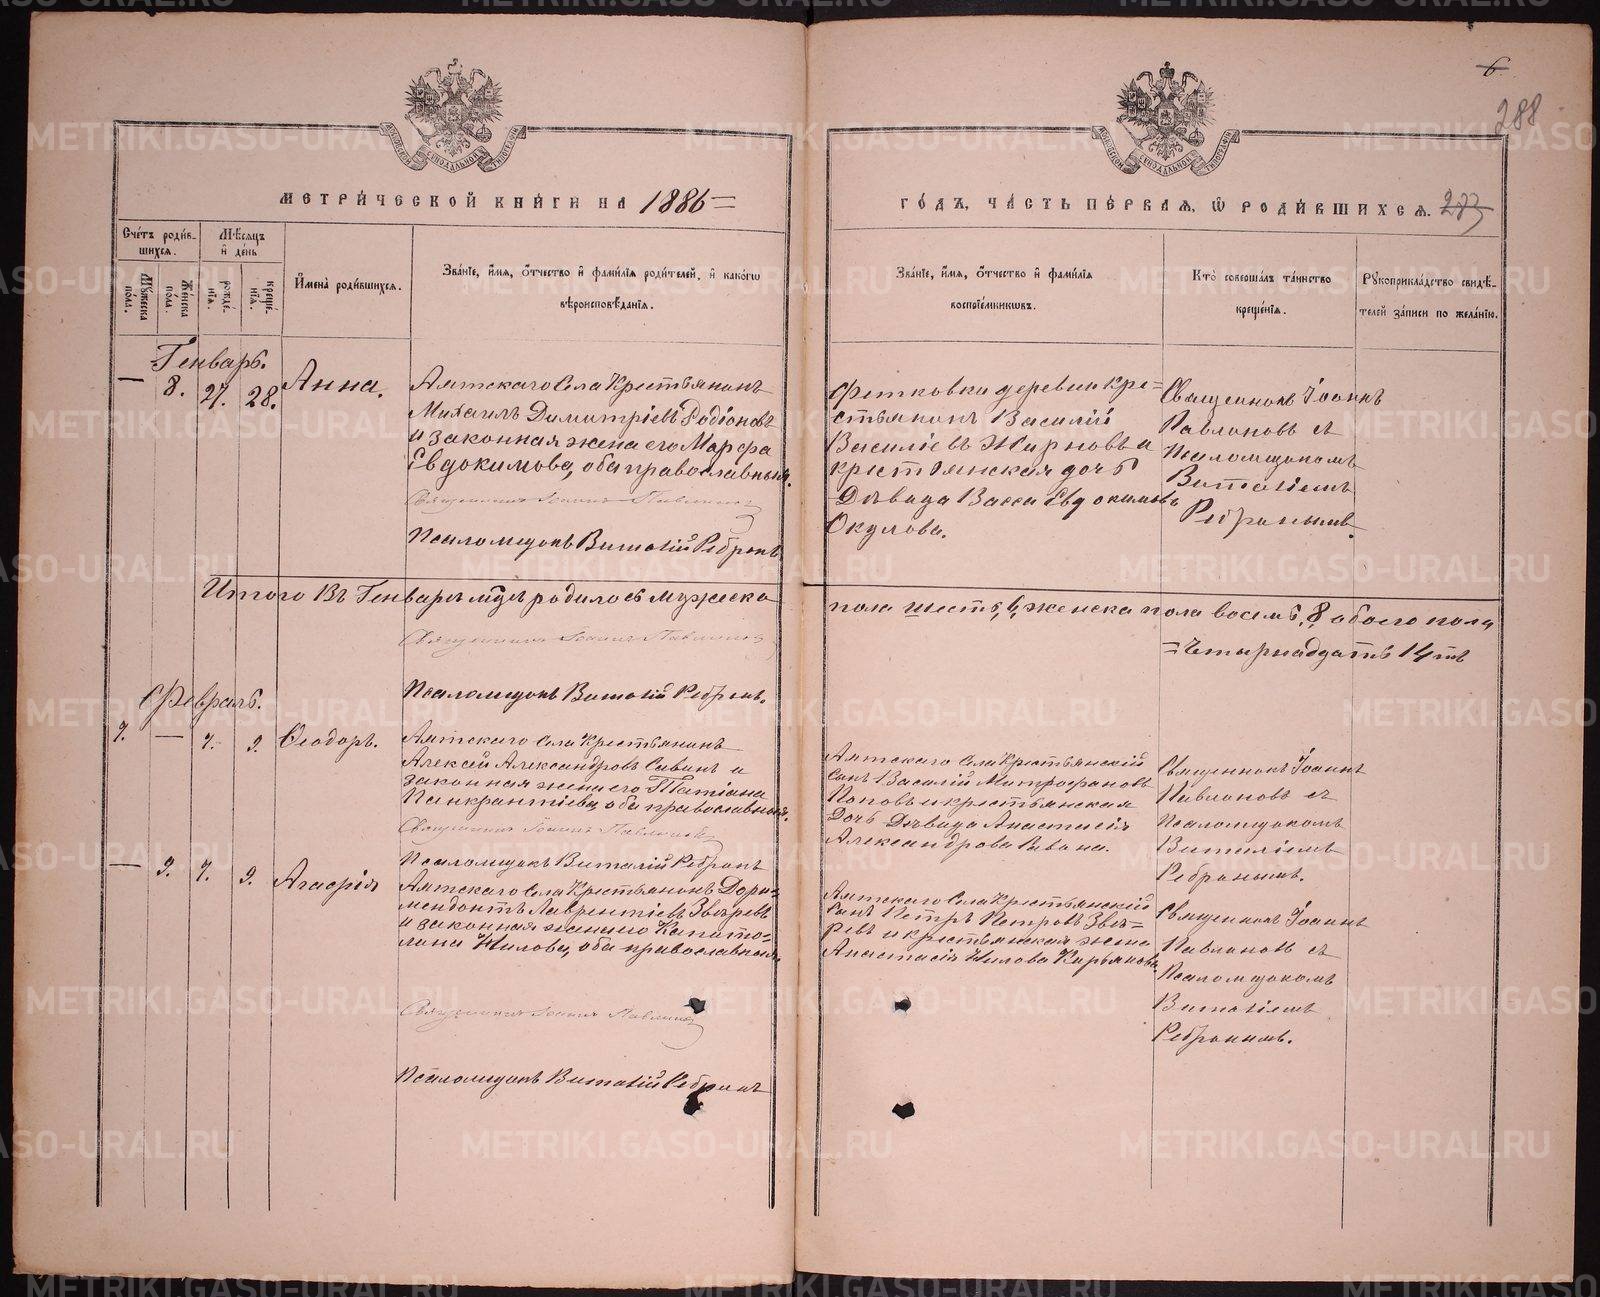 6
288
МОСКОВСКОЙ СѴНОДАЛЬНОЙ ТИПОГРАФІИ
МОСКОВСКОЙ СѴНОДАЛЬНОЙ ТИПОГРАФІИ
МЕТРИ́ЧЕСКОЙ КНИ́ГИ НА 1886=
ГО́ДЪ, ЧА́СТЬ ПЕ́РВАЯ, Ѡ РОДИ́ВШИХСЯ. 273
Сче́тъ роди́в-
шихся.
Мꙋжеска по́ла.
Же́нска по́ла.
Мѣ́сяцъ
и҆ де́нь
рожде́-
нїя.
креще́-
нїя.
И҆мена̀ роди́вшихся.
Зва́нїе, и҆́мя, ѻ҆́тчество и҆ фамі́лїя роди́телей, и҆ како́гѡ
вѣроисповѣ́данїя.
Зва́нїе, и҆́мя, ѻ҆́тчество и҆ фамі́лїя
воспрїе́мникѡвъ.
Кто̀ соверша́лъ та́инство
креще́нїя.
Рꙋкоприкла́дство свидѣ́-
телей за́писи по жела́нїю.
Генварь.
— 8. 27. 28. Анна.
Аятскаго Села Крестьянинъ
Михаилъ Димитріевъ Родіоновъ
и законная жена его Марфа
Евдокимова, оба православныя.
Священникъ Іоаннъ Павлиновъ
Псаломщикъ Виталій Ребринъ
деревни кре=
стьянинъ Василій
Василіевъ Жирновъ и
крестьянская дочь
Дѣвица Васса Евдокимова
Окулова.
Священникъ Іоаннъ
Павлиновъ съ
Псаломщикомъ
Виталіемъ
Ребринымъ.
Итого Въ Генварѣ м҃цѣ родилось мужеска
пола шесть, 6, женска пола восемь, 8, обоего пола
=Четырнадцать 14ть
Священникъ Іоаннъ Павлиновъ
Псаломщикъ Виталій Ребринъ.
Февраль.
7. — 7. 9. Ѳеодоръ.
Аятскаго Села Крестьянинъ
Алексій Александровъ Савинъ и
законная жена его Татіана
Панкратіева, оба православныя.
Священникъ Іоаннъ Павлиновъ
Псаломщикъ Виталій Ребринъ
Аятскаго Села Крестьянскій
Сынъ Василій Митрофановъ
Поповъ и крестьянская
Дочь Дѣвица Анастасія
Александрова Савина.
Священникъ Іоаннъ
Павлиновъ съ
Псаломщикомъ
Виталіемъ
Ребринымъ.
— 9. 7. 9. Агафія
Аятскаго Села Крестьянинъ Дори=
медонтъ Лаврентіевъ Звѣревъ
и законная жена его Капито=
лина Нилова, оба православныя.
Священникъ Іоаннъ Павлиновъ
Псаломщикъ Виталій Ребринъ
Аятскаго Села Крестьянскій
Сынъ Петръ Петровъ Звѣ=
ревъ и крестьянская жена
Анастасія Нилова Кирьянова.
Священникъ Іоаннъ
Павлиновъ съ
Псаломщикомъ
Виталіемъ
Ребринымъ.
METRIKI.GASO-URAL.RU